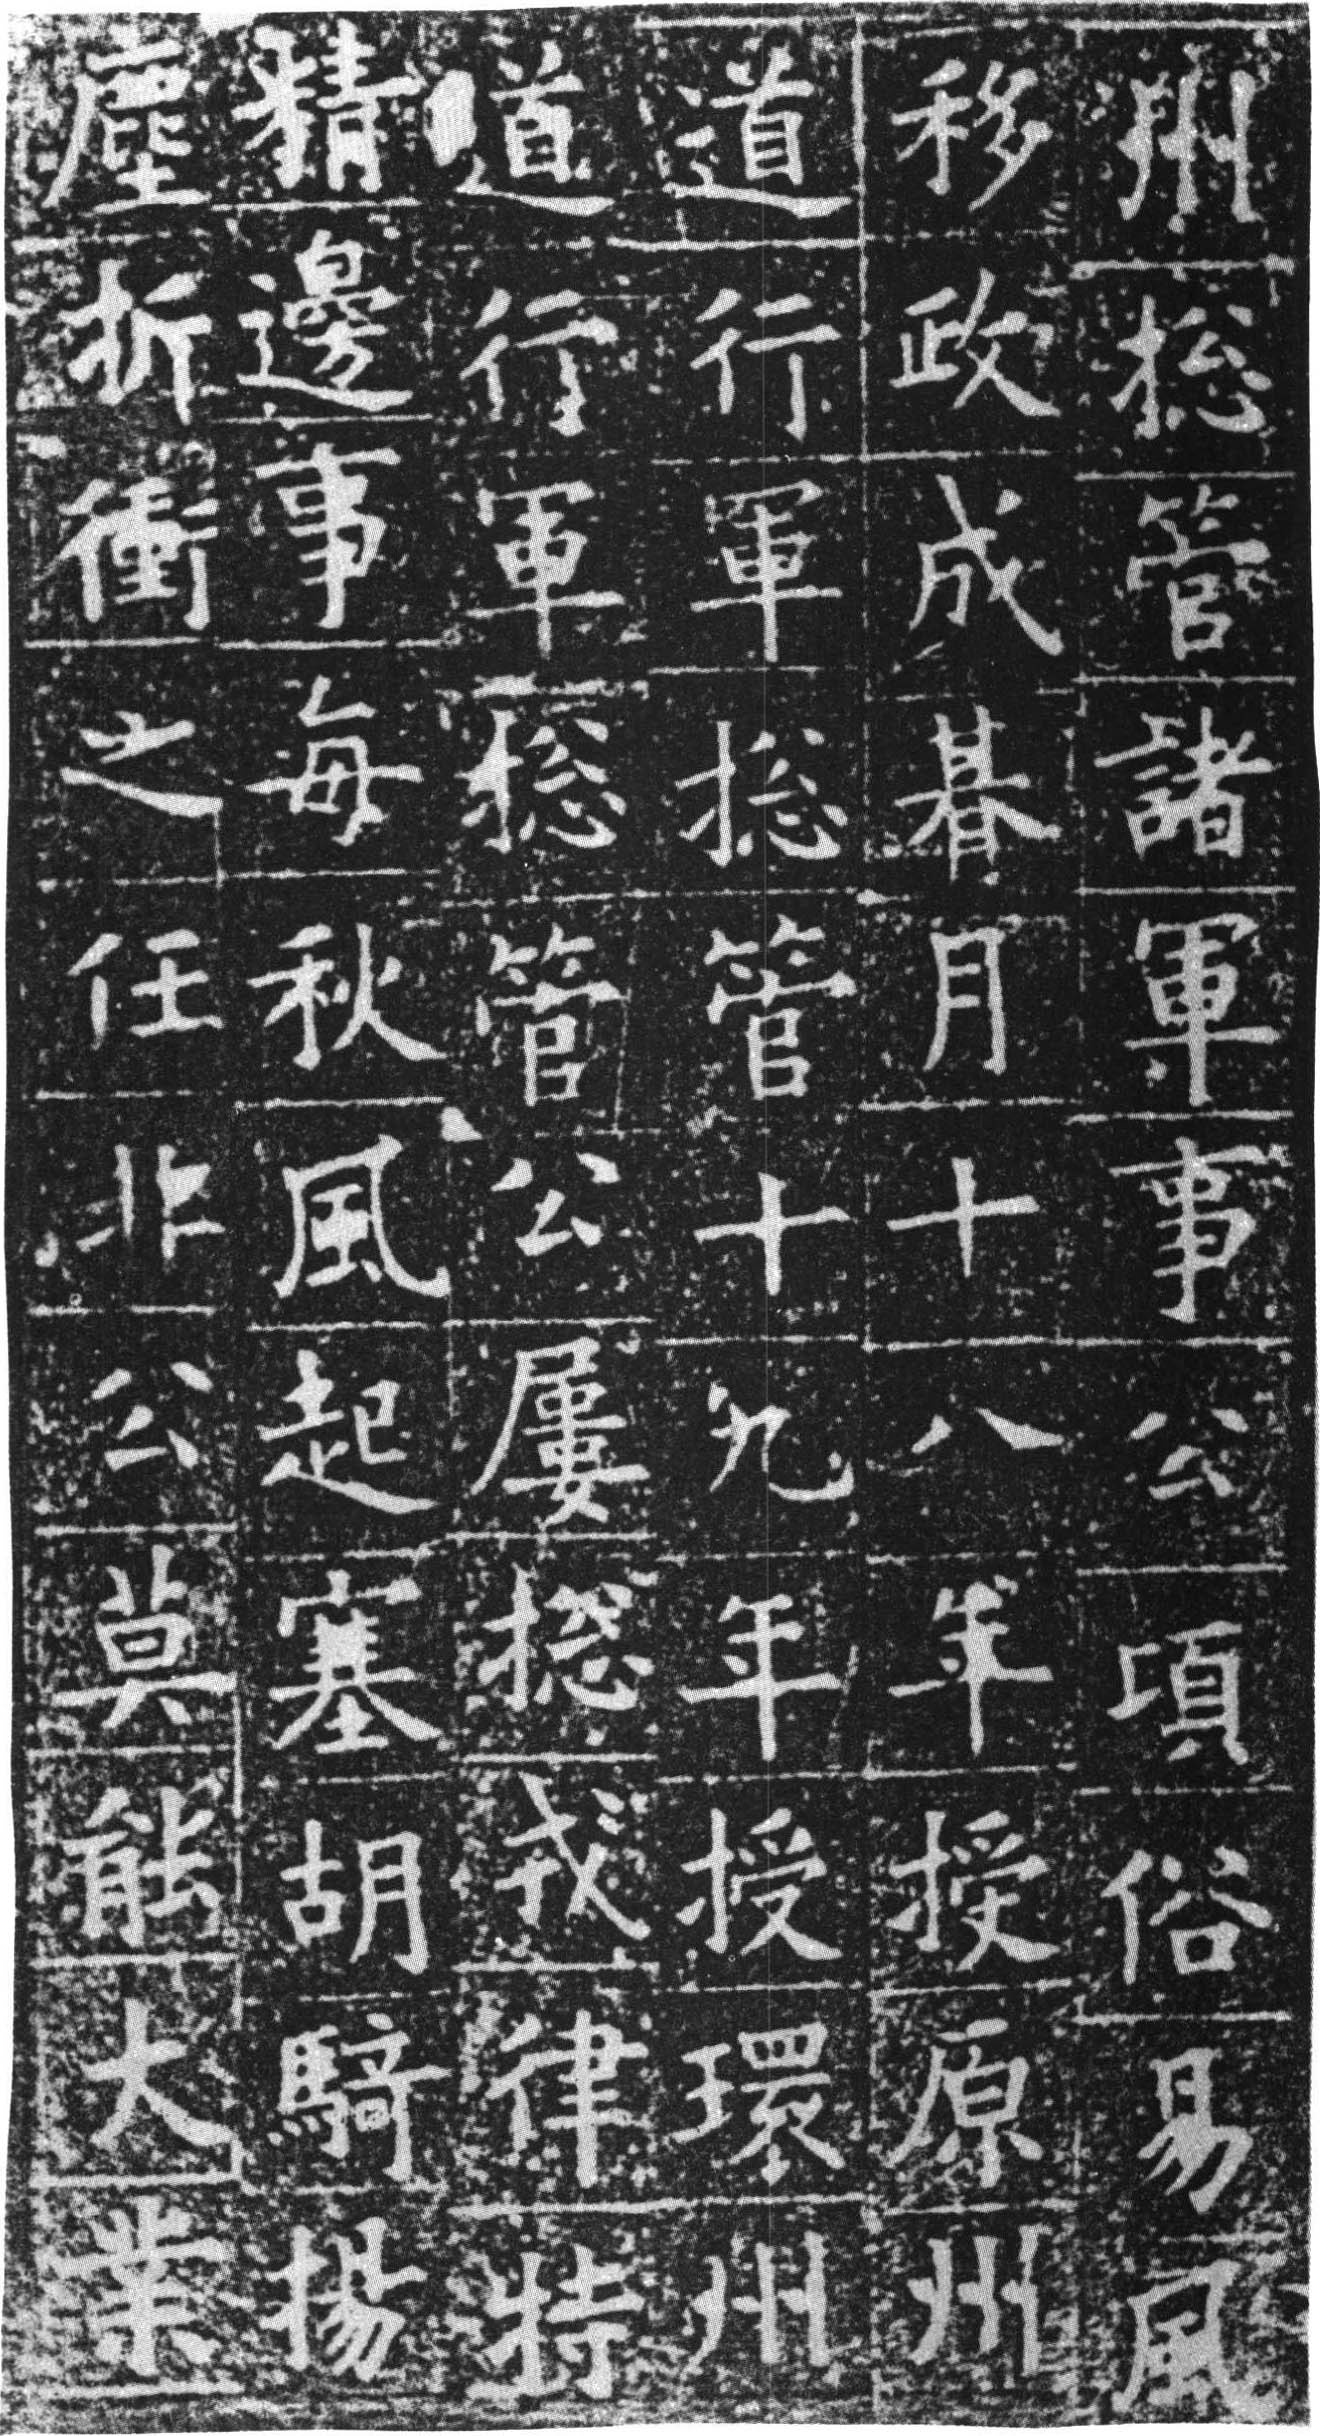 州捴管諸軍事公項俗易風
移政成朞月十八年授原州
道行軍捴管十九年授環州
道行軍捴管公屢捴戎律特
精邊事每秋風起塞胡騎揚
塵折衝之任非公莫能大業